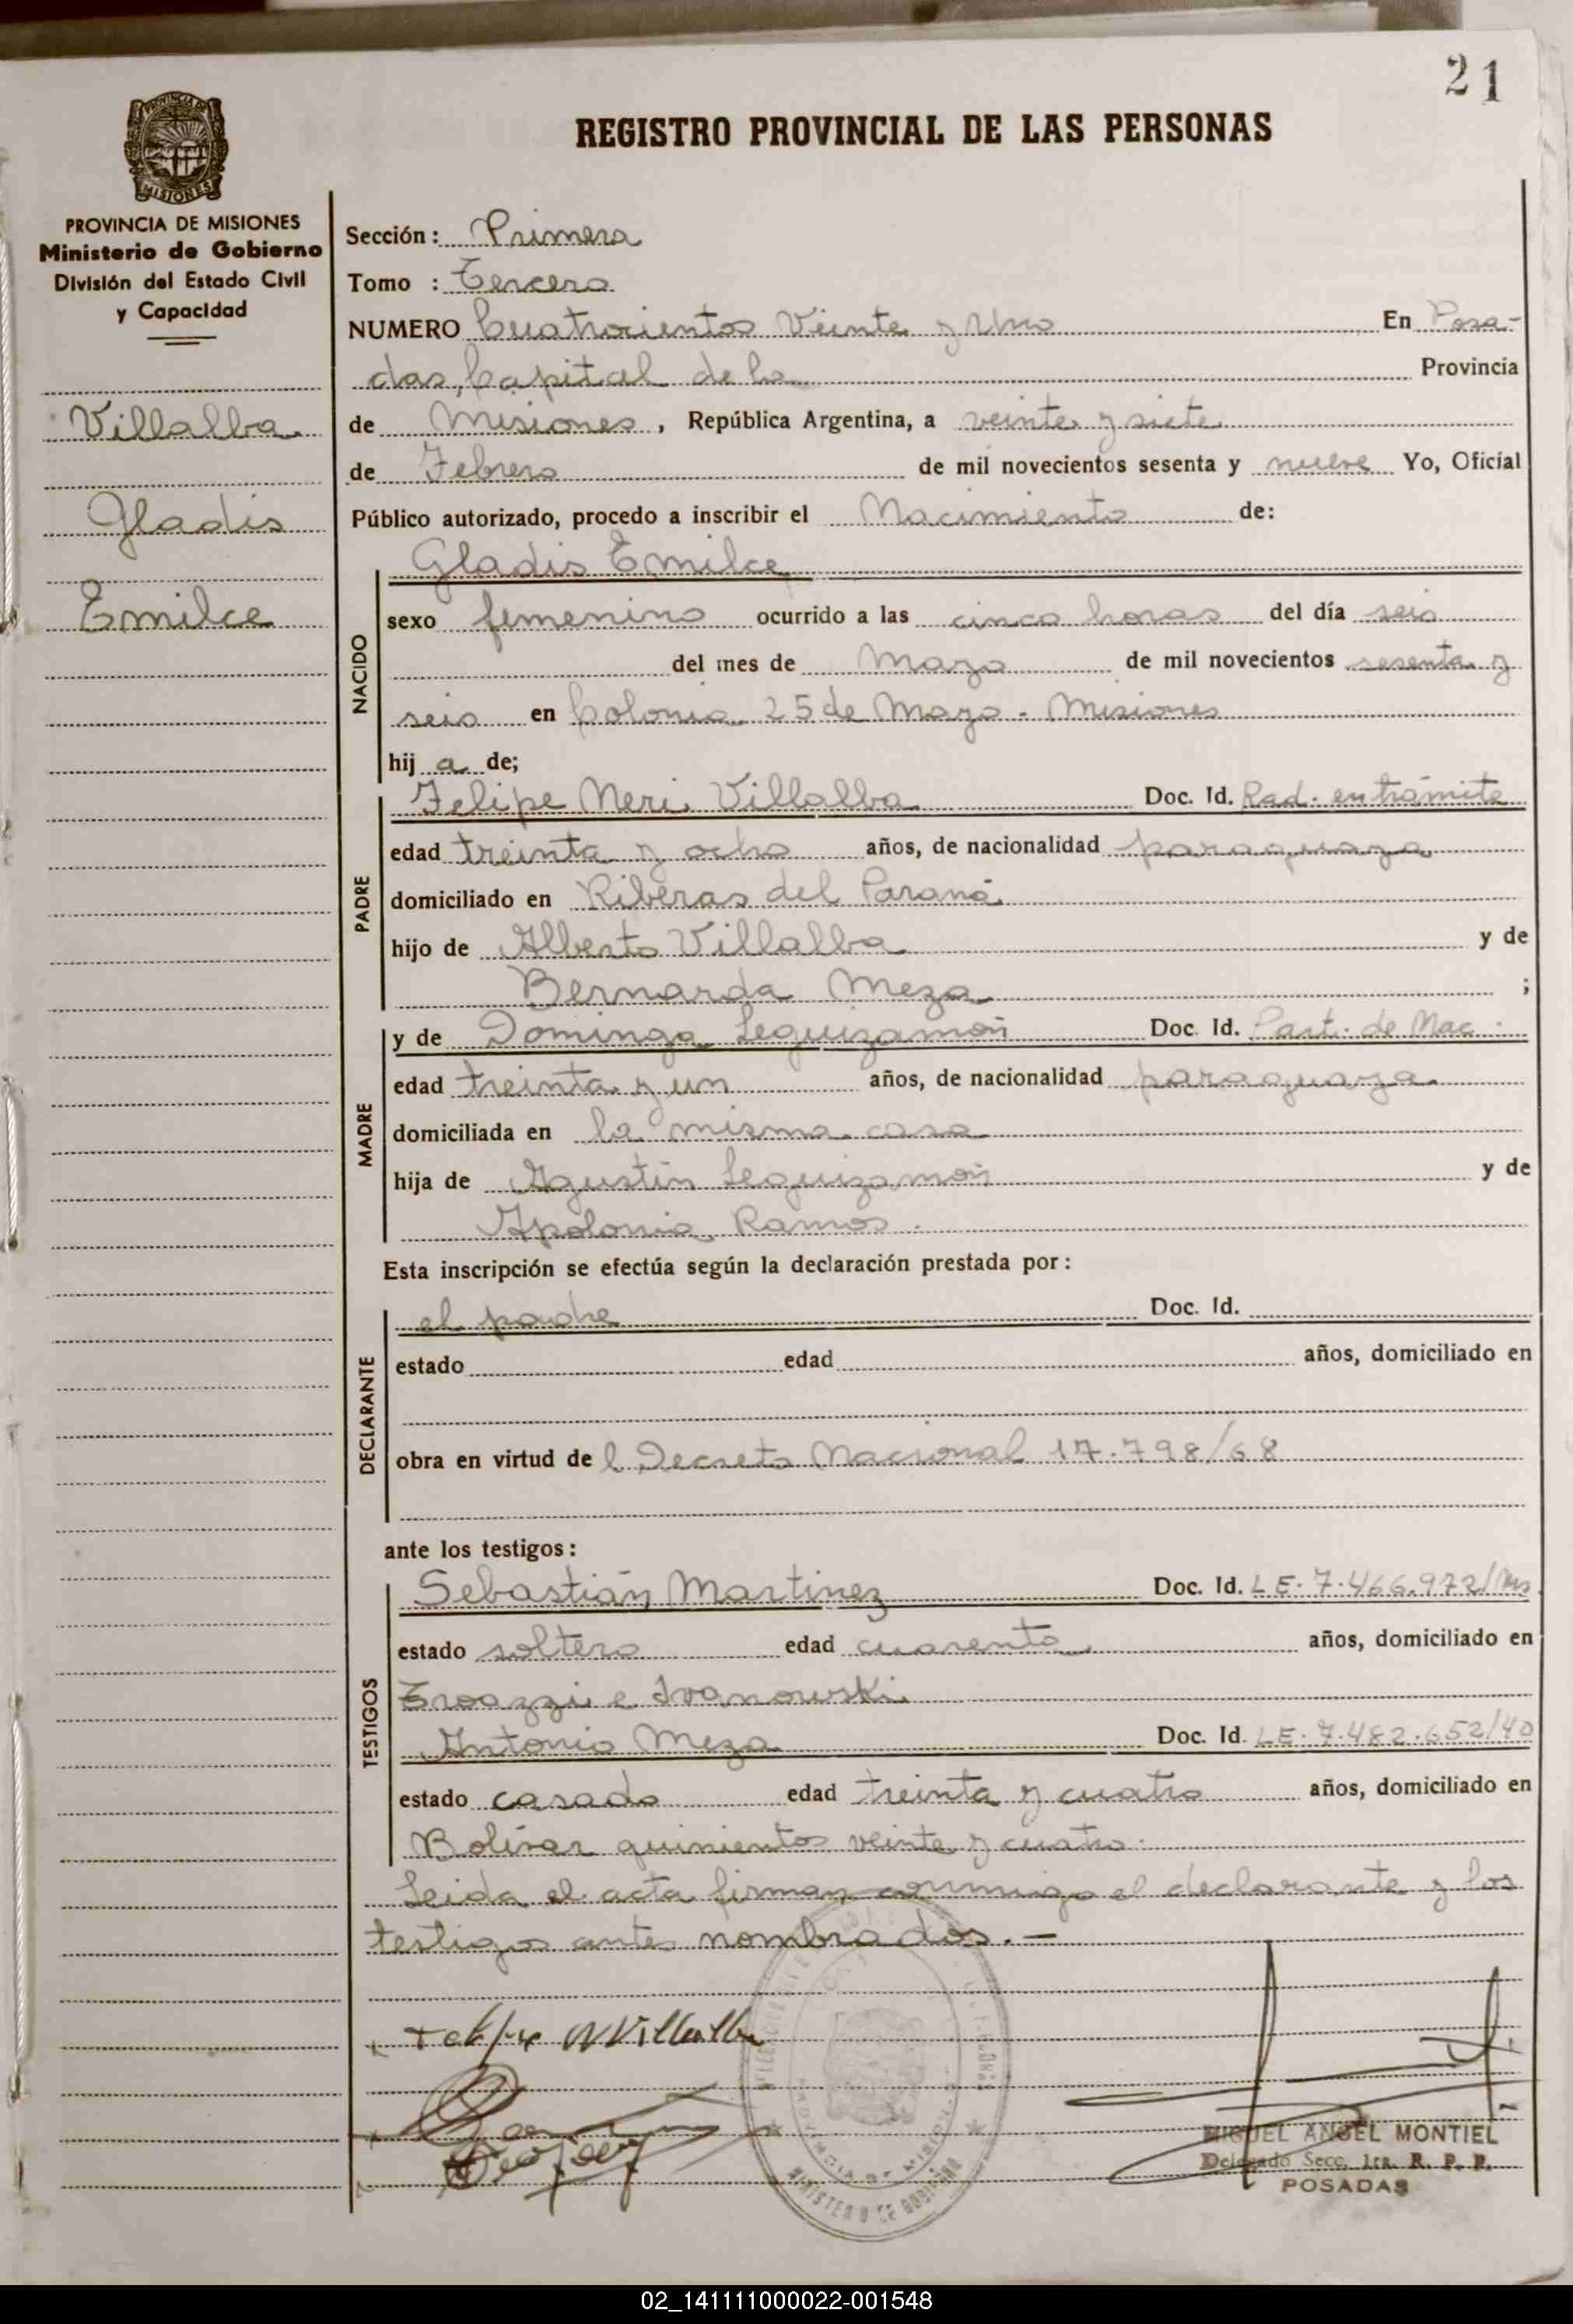 21
REGISTRO PROVINCIAL DE LAS PERSONAS
PROVINCIA DE MISIONES
Ministerio de Gobierno
División del Estado Civil
y Capacidad
Villalba
Gladis
Emilce
Sección: Primera
Tomo : Tercero
NUMERO Cuatrocientos Veinte y Uno En Posa-
das, Capital de la Provincia
de Misiones, República Argentina, a veinte y siete
de Febrero de mil novecientos sesenta y nueve Yo, Oficial
Público autorizado, procedo a inscribir el Nacimiento de:
NACIDO
Gladis Emilce
sexo femenino ocurrido a las cinco horas del día seis
del mes de Mayo de mil novecientos sesenta y
seis en Colonia 25 de Mayo - Misiones
hij a de;
PADRE
Felipe Neri Villalba Doc. Id. Rad. en trámite
edad treinta y ocho años, de nacionalidad paraguaya
domiciliado en Riberas del Paraná
hijo de Alberto Villalba y de
Bernarda Meza ;
MADRE
y de Dominga Leguizamón Doc. Id. Part. de Nac.
edad treinta y un años, de nacionalidad paraguaya
domiciliada en la misma casa
hija de Agustín Leguizamón y de
Apolonia Ramos.
Esta inscripción se efectúa según la declaración prestada por:
DECLARANTE
el padre Doc. Id.
estado edad años, domiciliado en
obra en virtud de l Decreto Nacional 17.798/68
ante los testigos:
TESTIGOS
Sebastián Martinez Doc. Id. LE. 7.466.972/Ms
estado soltero edad cuarenta años, domiciliado en
e Ivanowski
Antonio Meza Doc. Id. LE. 7.482.652/40
estado casado edad treinta y cuatro años, domiciliado en
Bolívar quinientos veinte y cuatro.
Leida el acta firman conmigo el declarante y los
testigos antes nombrados.—
Felipe N Villalba
MIGUEL ANGEL MONTIEL
Delegado Secc. 1ra. R. P. P.
POSADAS
PROVINCIA DE MISIONES
MINISTERIO DE GOBIERNO
02_141111000022-001548